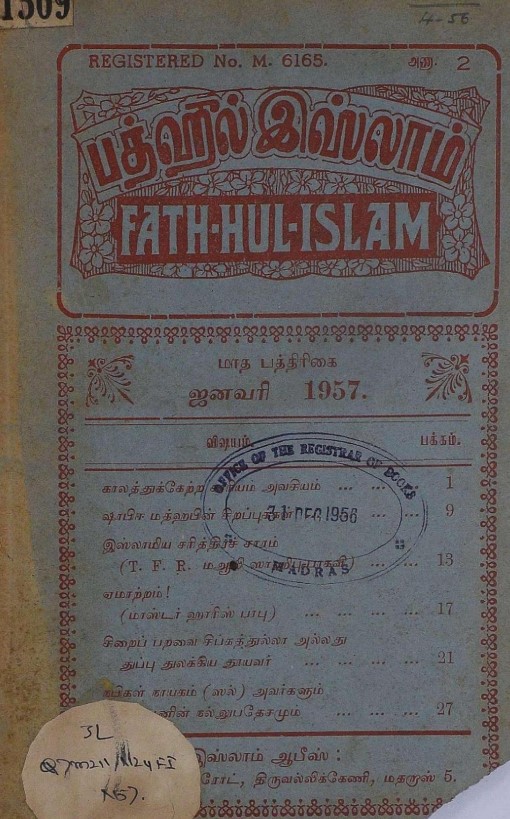 1509
4-56
REGISTERED No. M. 6165.
அணா 2
பத்ஹுல் இஸ்லாம்
FATH-HUL-ISLAM
மாத பத்திரிகை
ஜனவரி 1957.
விஷயம். பக்கம்.
காலத்துக்கேற்ற அவசியம் ... ... 1
ஷாபிஈ மத்ஹபின் சிறப்புகள் ... 9
இஸ்லாமிய சரித்திரச் சாரம்
(T. F. R. மஅ ... 13
ஏமாற்றம்!
(மாஸ்டர் ஹாரிஸ் பாபு) ... ... ... 17
சிறைப் பறவை சிப்கத்துல்லா அல்லது
துப்பு துலக்கிய தூயவர் ... ... ... 21
நபிகள் நாயகம் (ஸல்) அவர்களும்
கல்னுபதேசமும் ... ... 27
OFFICE OF THE REGISTRAR OF BOOKS
31 DEC 1956
MADRAS
இஸ்லாம் ஆபீஸ் :
ரோட், திருவல்லிக்கேணி, மதராஸ் 5.